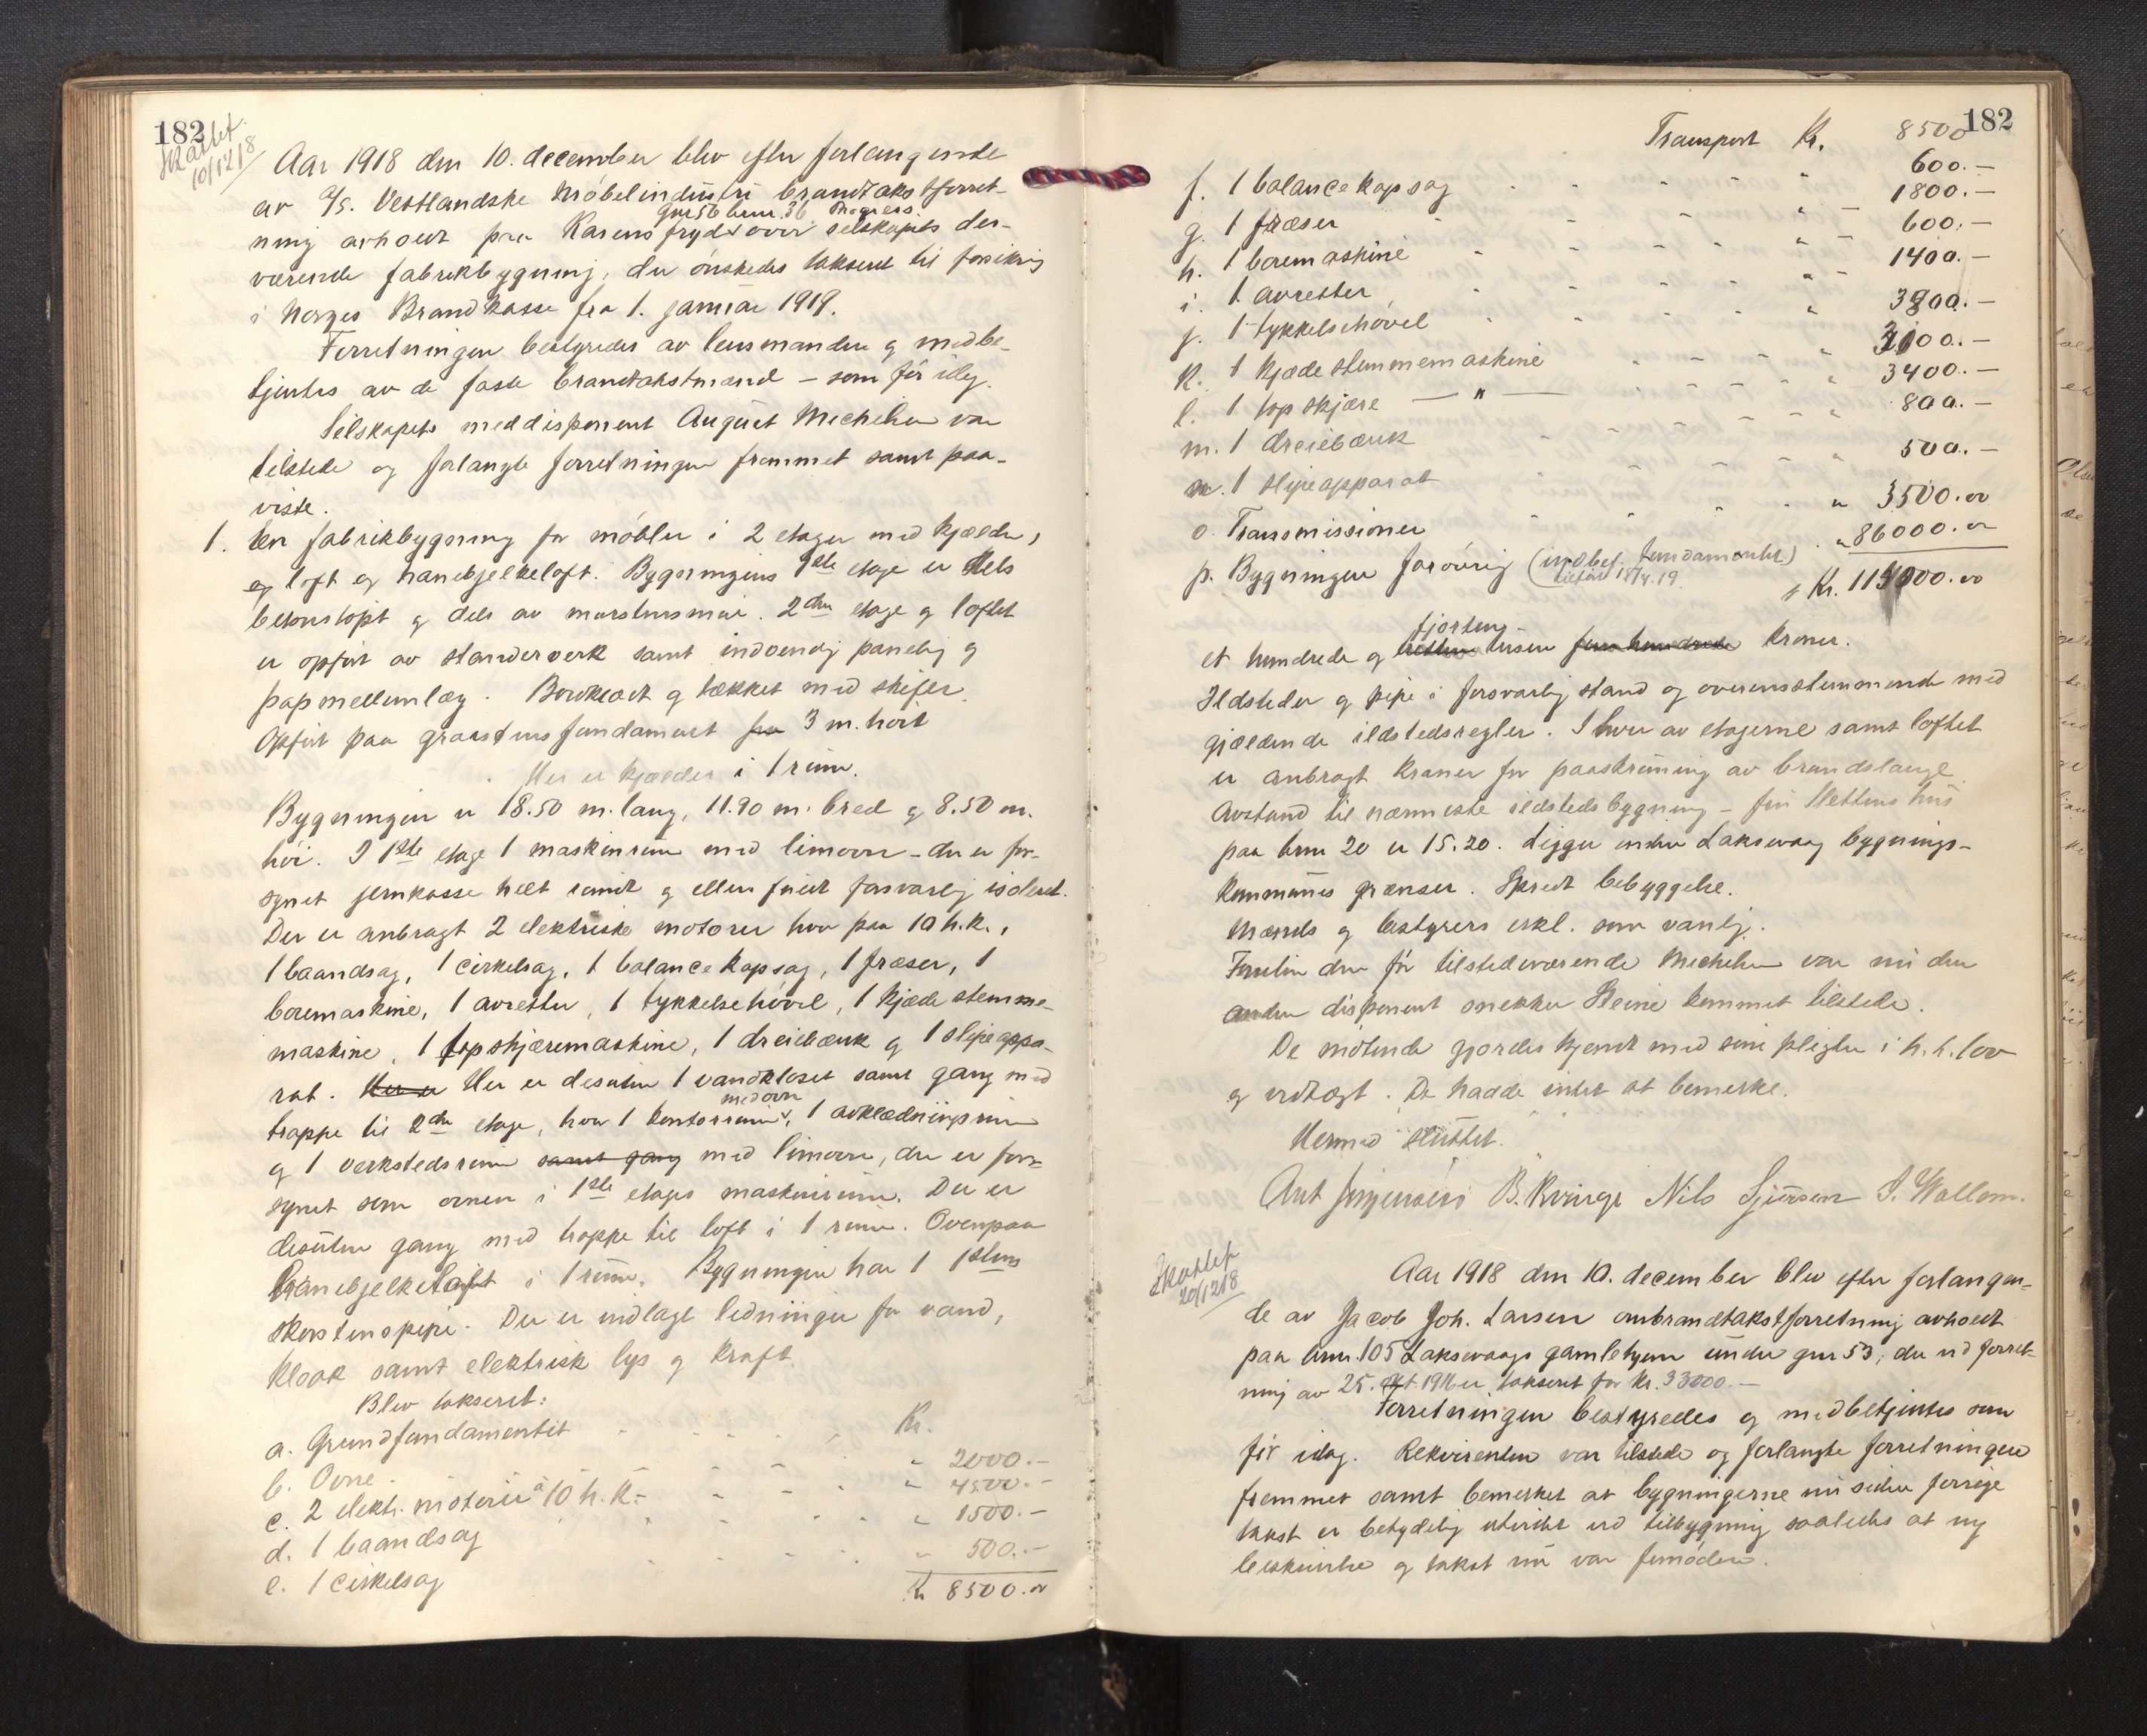 182
Skattet.
10/12 18
Aar 1918 den 10. december blev efter forlangende
av A/S. Vestlandske Møbelindustri brandtakstforret-
gnr 56 brnr. 36 Progress
ning avholdt paa Karensfryd over selskapets der-
værende fabrikbygning, der ønskedes takseret til forsikring
i Norges Brandkasse fra 1. januar 1919.
Forretningen bestyredes av lensmanden og medbe-
tjentes av de faste brandtakstmænd – som før idag.
Selskapets meddisponent August Michelsen var
tilstede og forlangte forretningen fremmet samt paa-
viste.
1. En fabrikbygning for møbler i 2 etager med kjælder,
og loft og hanebjelkeloft. Bygningens 1ste etage er dels
betonstøpt og dels av murstensmur. 2den etage og loftet
er opført av standerverk samt indvendig paneling og
papmellemlæg. Bordklædt og tækket med skifer.
Opført paa graastensfundament fra 3 m. høit
Her er kjælder i 1 rum.
Bygningen er 18.50 m. lang, 11.90 m. bred og 8.50 m.
høi. I 1ste etage 1 maskinrum med limovn – der er for-
synet jernkasse helt rundt og ellers fuldt forsvarlig isoleret.
Der er anbragt 2 elektriske motorer hver paa 10 h.k.,
1 baandsag, 1 cirkelsag, 1 balancekapsag, 1 fræser, 1
boremaskine, 1 avretter, 1 tykkelsehøvel, 1 kjædestemme-
maskine, 1 tapskjæremaskine, 1 dreiebænk og 1 slipeappa-
rat. Her er Her er desuten 1 vandkloset samt gang med
med ovn
trappe til 2den etage, hvor 1 kontorrum, 1 avklædningsrum
og 1 verkstedsrum samt gang med limovn, der er for-
synet som ovnen i 1ste etages maskinrum. Der er
desuten gang med trappe til loft i 1 rum. Ovenpaa
hanebjelkeloft i 1 rum. Bygningen har 1 1stens
skorstenspipe. Der er indlagt ledninger for vand,
kloak samt elektrisk lys og kraft.
Blev takseret:
a. Grundfundamentet Kr.
b. Ovne " 2000.-
c. 2 elektr. motorer à 10 h.K. " 4500.-
d. 1 baandsag " 1500.-
e. 1 cirkelsag " 500.-
Kr 8500.00
182
Transport Kr. 8500
f. 1 balancekapsag 600.-
g. 1 fræser " 1800.-
h. 1 boremaskine " 600.-
i. 1 avretter " 1400.-
j. 1 tykkelsehøvel " 3800.-
k. 1 kjædestemmemaskine " 3100.-
l. 1 tapskjære — " — " 3400.-
m. 1 dreiebænk " 800.-
n. 1 slipeapparat " 500.-
o. Transmissioner " 3500.00
p. Bygningen forøvrig (indbef. fundamentet) " 86000.00
tilført 18/4.19.
Kr. 114000.00
fjorten-
et hundrede og tretten tusen fem hundrede kroner.
Ildsteder og pipe i forsvarlig stand og overensstemmende med
gjældende ildstedsregler. I hver av etagerne samt loftet
er anbragt kraner for paaskruning av brandslange.
Avstand til nærmeste ildstedsbygning – fru Slettens hus
paa brnr 20 er 15.20. Ligger under Laksevaag bygnings-
kommunes grænser. Spredt bebyggelse.
Mænds og bestyrers erkl. som vanlig.
Foruten den før tilstedeværende Michelsen var nu den
anden disponent snekker Steine kommet tilstede.
De møtende gjordes kjendt med sine pligter i h.t. lov
og vedtægt. De hadde intet at bemerke.
Hermed sluttet.
Ant Jørgensen B. Kvinge Nils Sjursen S. Wallem.
Skattet
20/12 18
Aar 1918 den 10. december blev efter forlangen-
de av Jacob Joh. Larsen ombrandtakstforretning avholdt
paa brnr. 105 Laksevaags gamlehjem under gnr 53, der ved forret-
ning av 25. 1916 er takseret for Kr. 33000.-
Forretningen bestyredes og medbetjentes som
før idag. Rekvirenten var tilstede og forlangte forretningen
fremmet samt bemerket at bygningerne nu siden forrige
takst er betydelig utvidet ved tilbygning saaledes at ny
beskrivelse og takst nu var fornøden.